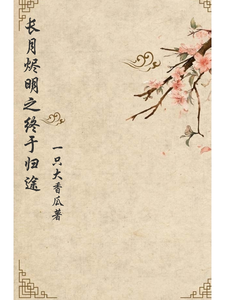 长月烬明之终于归途
一只大香瓜著